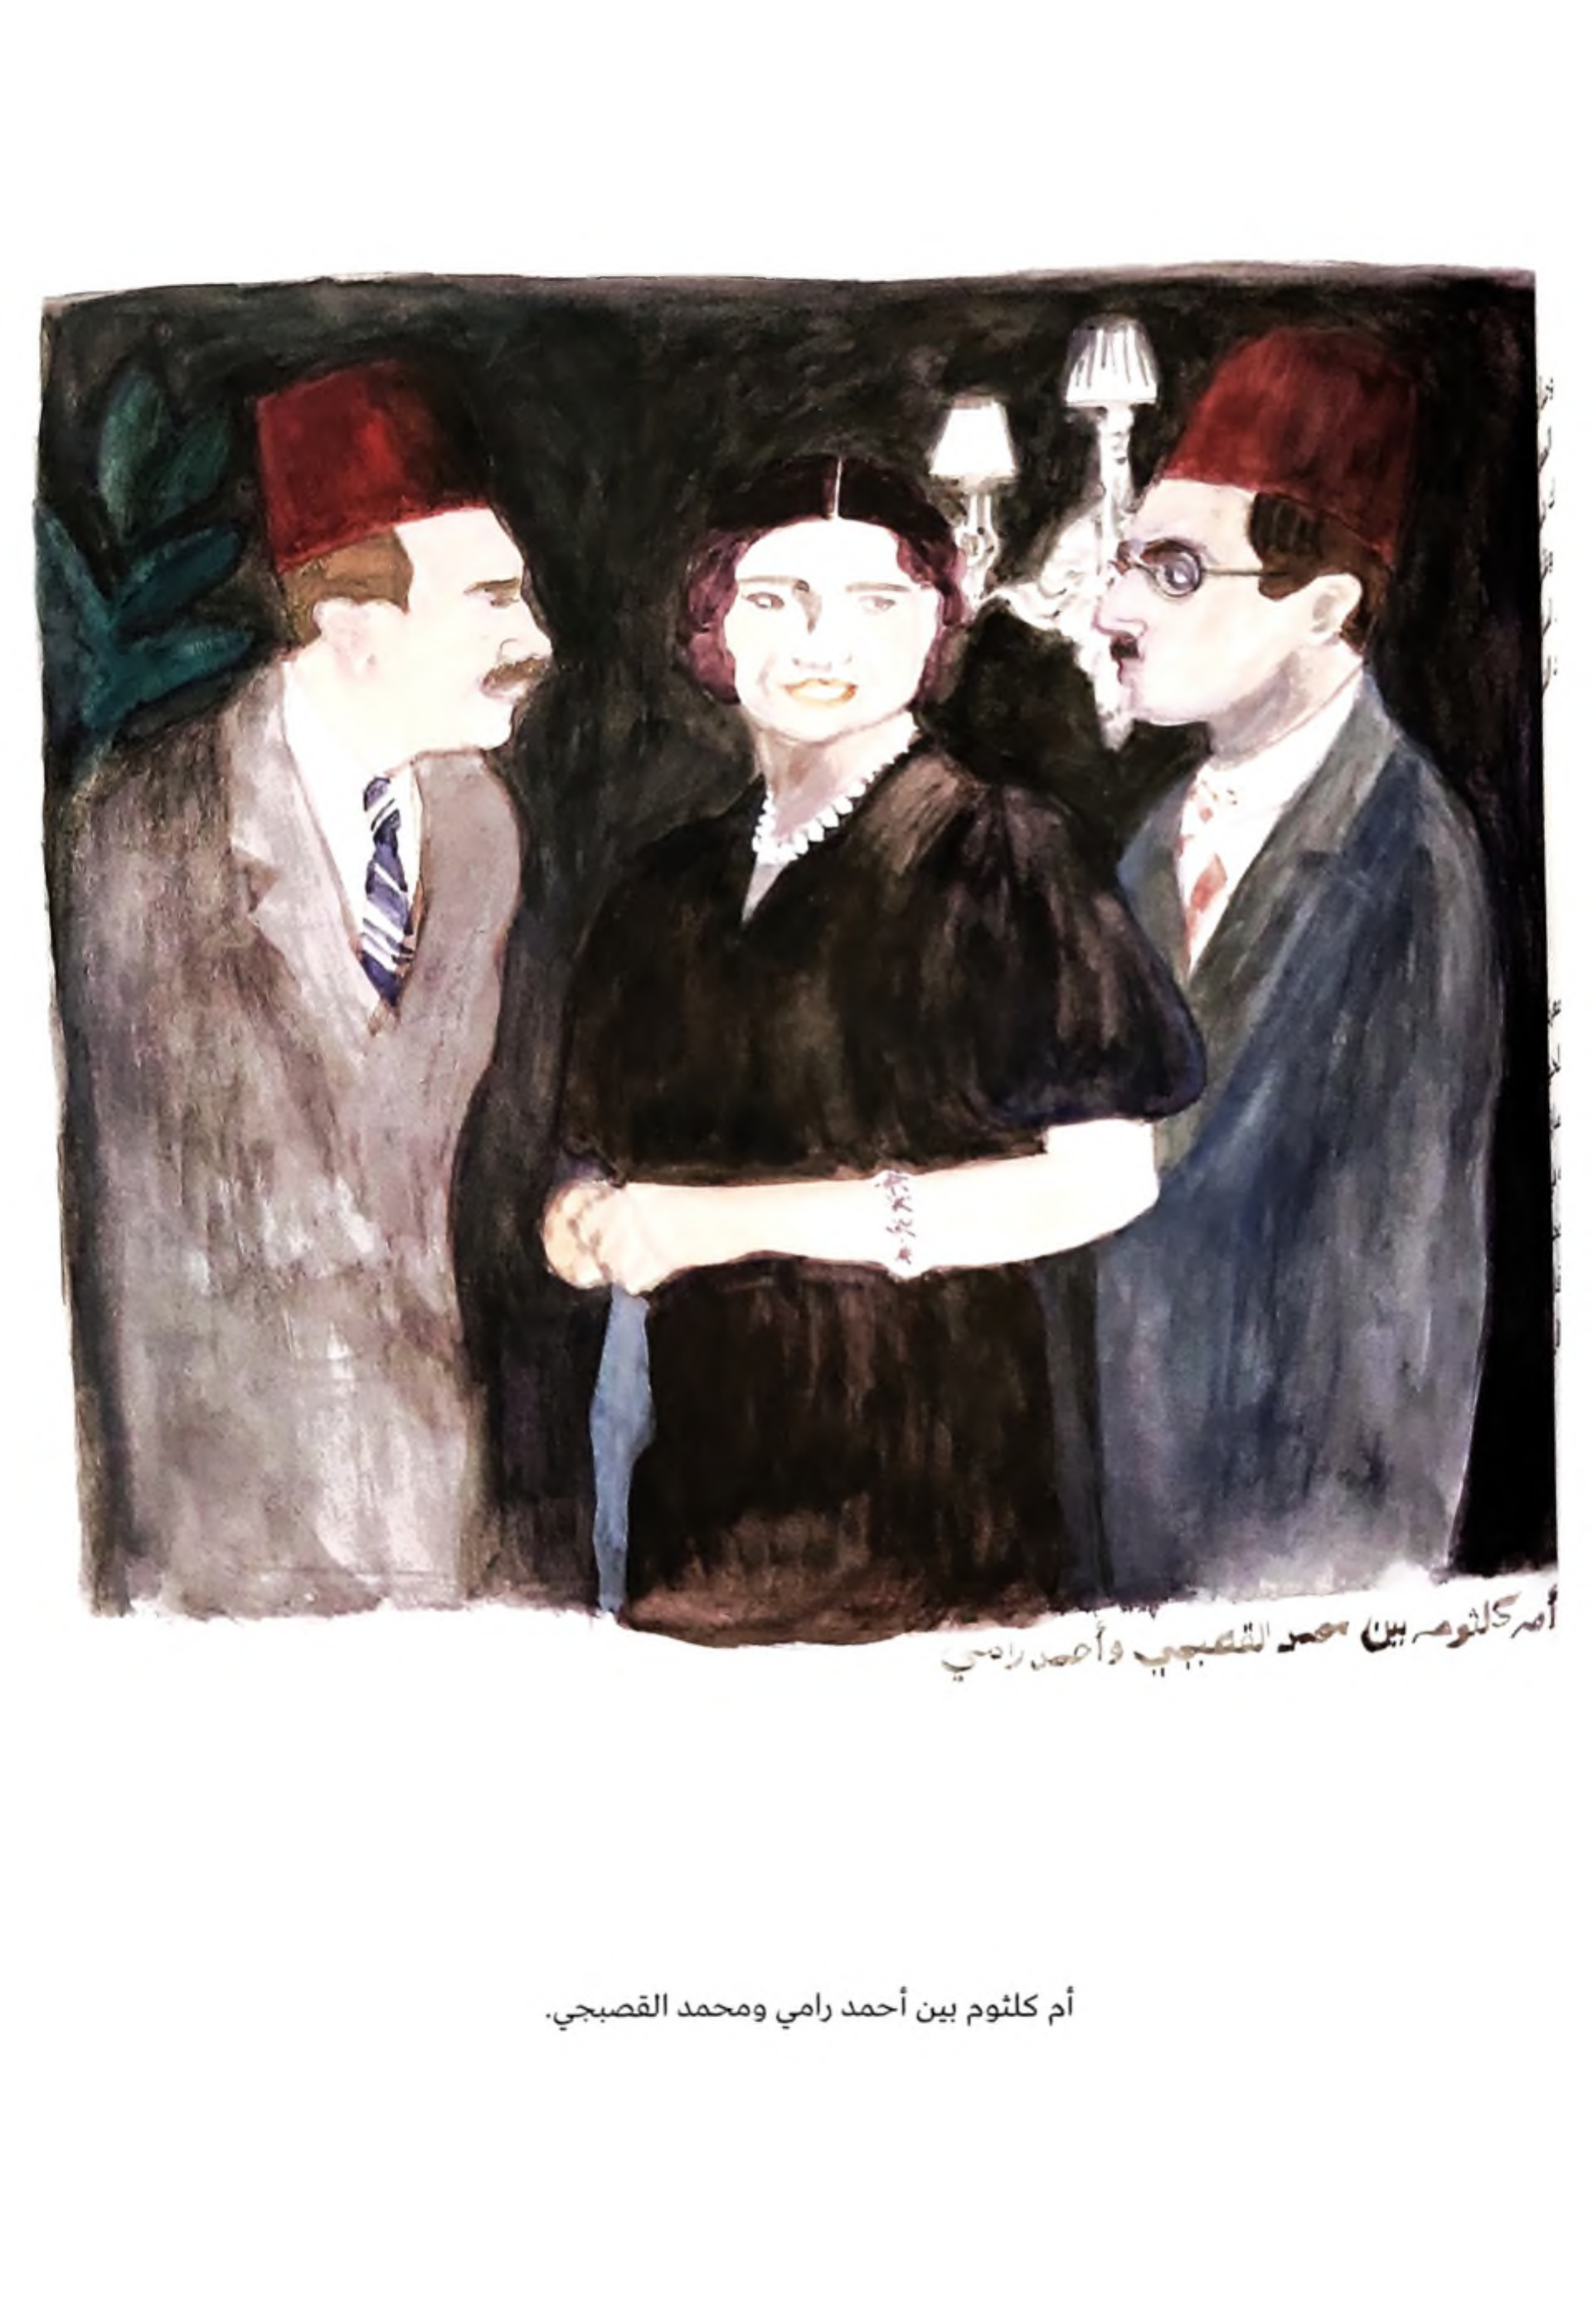 أم كلثوم بين محمد القصبجي وأحمد رامي
أم كلثوم بين أحمد رامي ومحمد القصبجي.